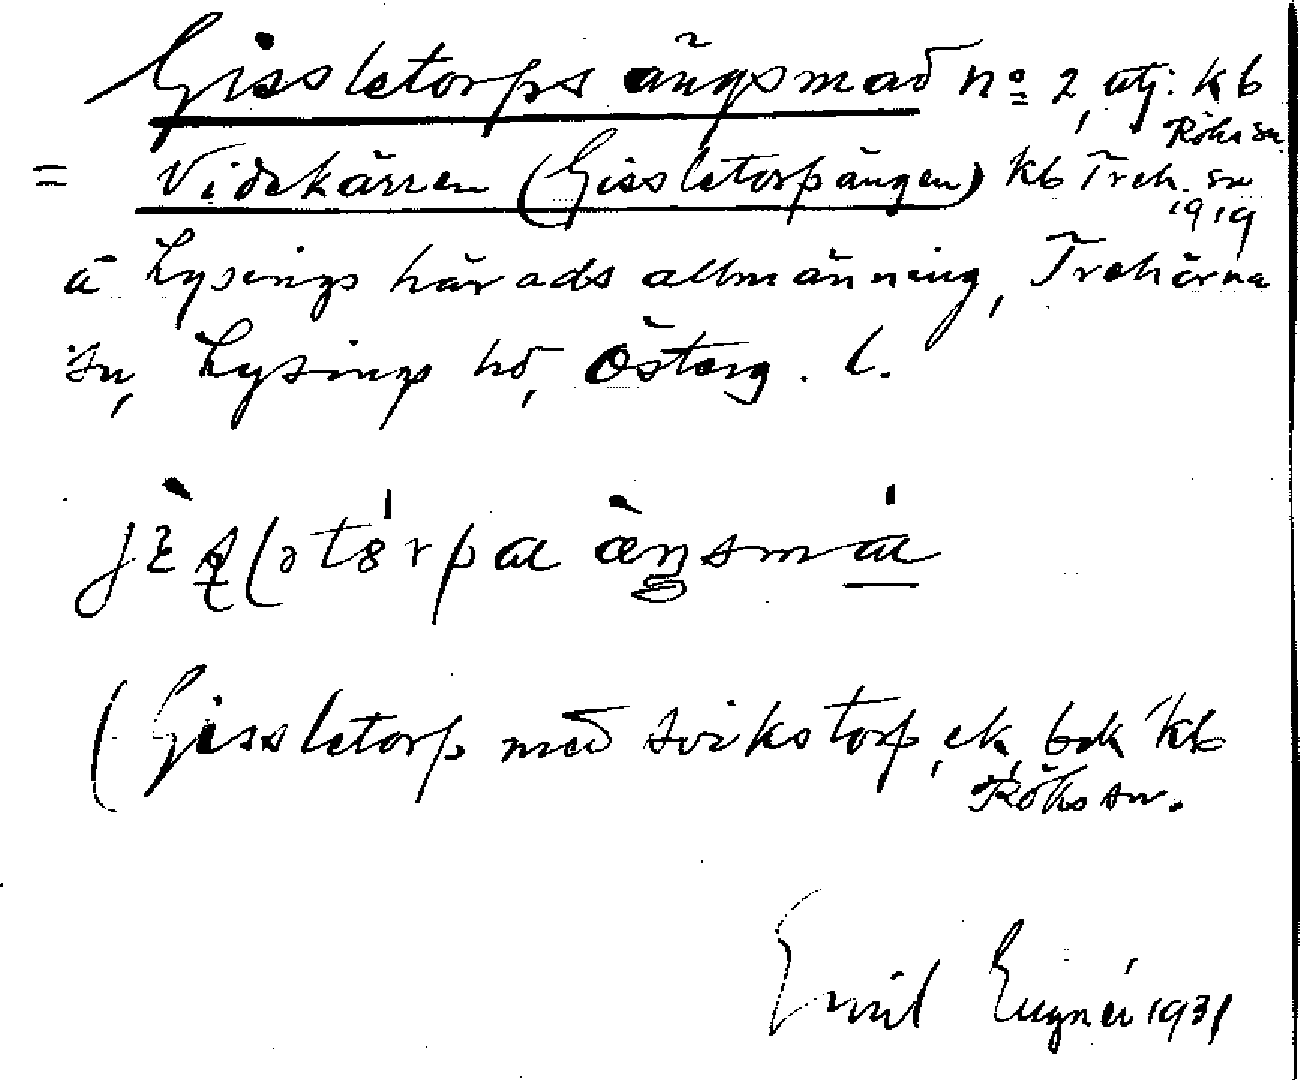 Gissletorps ängsmad no 2, utj: kb Röks sn.
= Videkärren (Gissletorpängen) kb Treh. sn 1919
å Lysings härads allmänning, Trehörna
sn, Lysings hd, Österg. l.
jɛ̀s̨lətórpa æ̀ŋsmá
(Gissletorp med Svikstorp, ek, bdk kb
Röks sn.
Emil Eugnér 1931